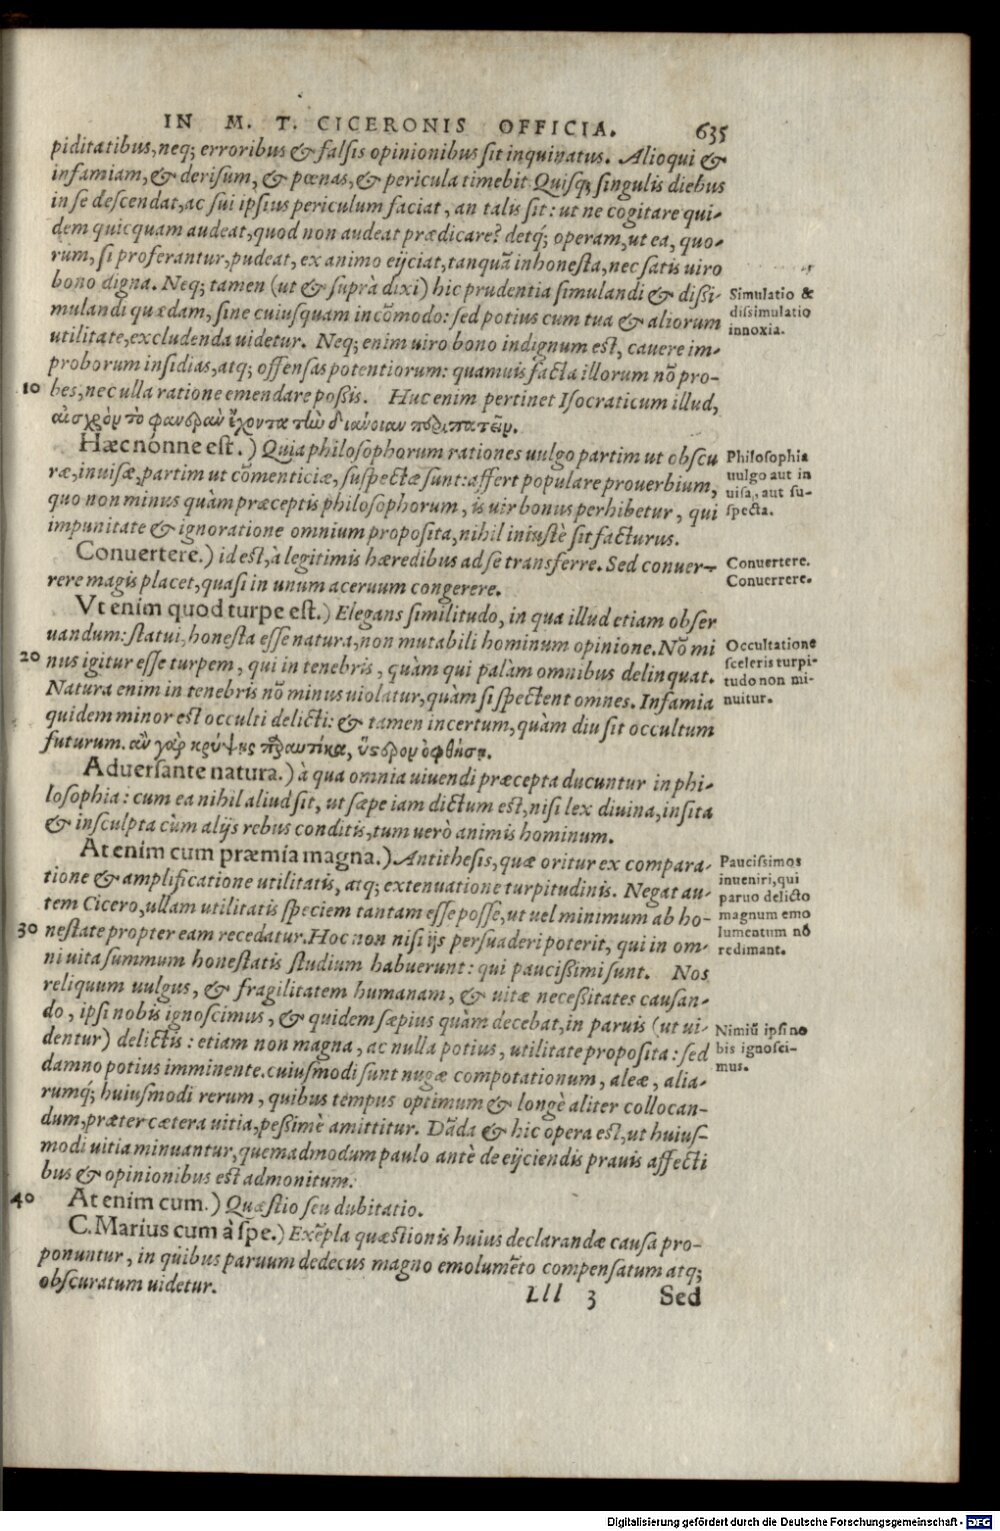 IN M. T. CICERONIS OFFICIA. 635
piditatibus, neq; erroribus & falsis opinionibus sit inquinatus. Alioqui &
infamiam, & derisum, & pœnas, & pericula timebit. Quisq; singulis diebus
in se descendat, ac sui ipsius periculum faciat, an talis sit: ut ne cogitare qui-
dem quicquam audeat, quod non audeat prædicare? detq́; operam, ut ea, quo-
rum, si proferantur, pudeat, ex animo eijciat, tanquã inhonesta, nec satis uiro
bono digna. Neq; tamen (ut & suprà dixi) hic prudentia simulandi & dissi-
mulandi quædam, sine cuiusquam incõmodo: sed potius cum tua & aliorum
utilitate, excludenda uidetur. Neq; enim uiro bono indignum est, cauere im-
proborum insidias, atq; offensas potentiorum: quamuis facta illorum nõ pro-
10 bes, nec ulla ratione emendare possis. Huc enim pertinet Isocraticum illud,
αἰσχρὸν τὸ φανερὰν ἔχοντα τὴν διάνοιαν περιπατεῖν.
Hæc nónne est.) Quia philosophorum rationes uulgo partim ut obscu
ræ, inuisæ, partim ut cõmenticiæ, suspectæ sunt: affert populare prouerbium,
quo non minus quàm præceptis philosophorum, is uir bonus perhibetur, qui
impunitate & ignoratione omnium proposita, nihil iniustè sit facturus.
Conuertere.) id est, à legitimis hæredibus ad se transferre. Sed conuer-
rere magis placet, quasi in unum aceruum congerere.
Vt enim quod turpe est.) Elegans similitudo, in qua illud etiam obser
uandum: statui, honesta esse natura, non mutabili hominum opinione. Nõ mi
20 nus igitur esse turpem, qui in tenebris, quàm qui palàm omnibus delinquat.
Natura enim in tenebris nõ minus uiolatur, quàm si spectent omnes. Infamia
quidem minor est occulti delicti: & tamen incertum, quàm diu sit occultum
futurum. ἂν γὰρ κρύψῃς παραυτίκα, ὕστερον ὀφθήσῃ.
Aduersante natura.) à qua omnia uiuendi præcepta ducuntur in phi-
losophia: cum ea nihil aliud sit, ut sæpe iam dictum est, nisi lex diuina, insita
& insculpta cùm alijs rebus conditis, tum uerò animis hominum.
At enim cum præmia magna.) Antithesis, quæ oritur ex compara-
tione & amplificatione utilitatis, atq; extenuatione turpitudinis. Negat au-
tem Cicero, ullam utilitatis speciem tantam esse posse, ut uel minimum ab ho-
30 nestate propter eam recedatur. Hoc non nisi ijs persuaderi poterit, qui in om-
ni uita summum honestatis studium habuerunt: qui paucissimi sunt. Nos
reliquum uulgus, & fragilitatem humanam, & uitæ necessitates causan-
do, ipsi nobis ignoscimus, & quidem sæpius quàm decebat, in paruis (ut ui-
dentur) delictis: etiam non magna, ac nulla potius, utilitate proposita: sed
damno potius imminente. cuiusmodi sunt nugæ compotationum, aleæ, alia-
rumq́; huiusmodi rerum, quibus tempus optimum & longè aliter collocan-
dum, præter cætera uitia, pessimè amittitur. Dãda & hic opera est, ut huius-
modi uitia minuantur, quemadmodum paulo antè de eijciendis prauis affecti
bus & opinionibus est admonitum.
40 At enim cum.) Quæstio seu dubitatio.
C. Marius cum à spe.) Exẽpla quæstionis huius declarandæ causa pro-
ponuntur, in quibus paruum dedecus magno emolumẽto compensatum atq;
obscuratum uidetur.
Lll 3 Sed
Simulatio &
dissimulatio
innoxia.
Philosophia
uulgo aut in
uisa, aut su-
specta.
Conuertere.
Conuerrere.
Occultatione
sceleris turpi-
tudo non mi-
nuitur.
Paucissimos
inueniri, qui
paruo delicto
magnum emo
lumentum nõ
redimant.
Nimiũ ipsi no
bis ignosci-
mus.
Digitalisierung gefördert durch die Deutsche Forschungsgemeinschaft - DFG